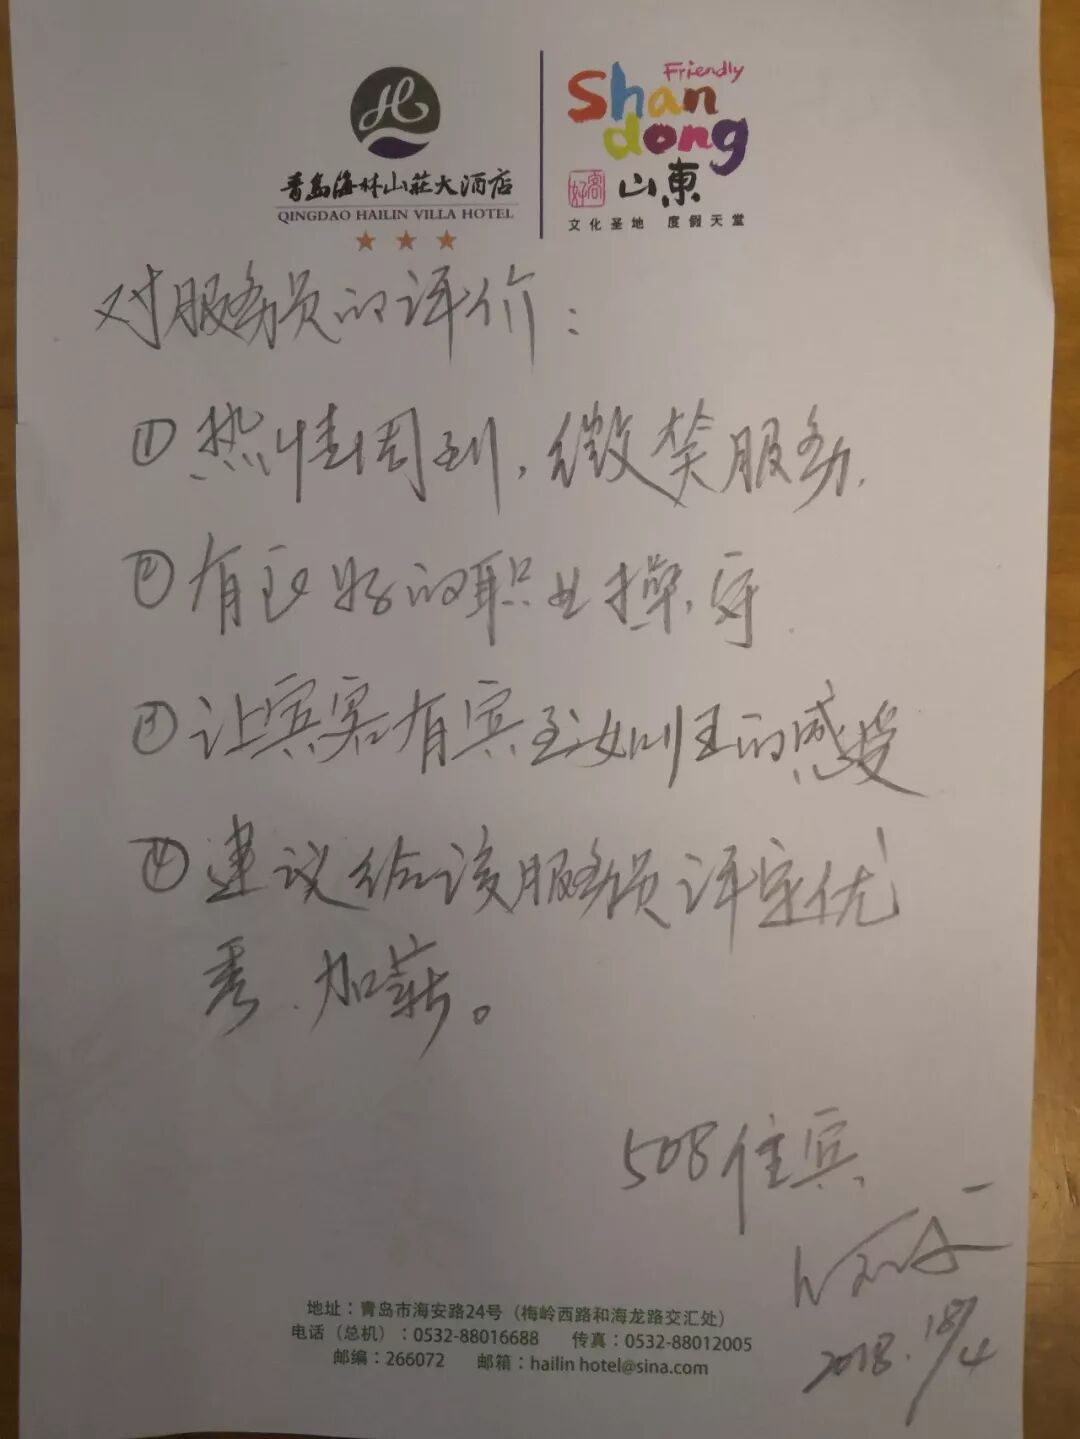 青岛海林山莊大酒店
QINGDAO HAILIN VILLA HOTEL
Friendly
Shan
dong
好客
山東
文化圣地 度假天堂
对服务员的评价:
①热情周到,微笑服务.
②有良好的职业操守.
③让宾客有宾至如归的感受
④建议给该服务员评定优
秀.加薪。
508住宾
2018.18/4
地址:青岛市海安路24号(梅岭西路和海龙路交汇处)
电话(总机):0532-88016688 传真:0532-88012005
邮编:266072 邮箱:hailin hotel@sina.com